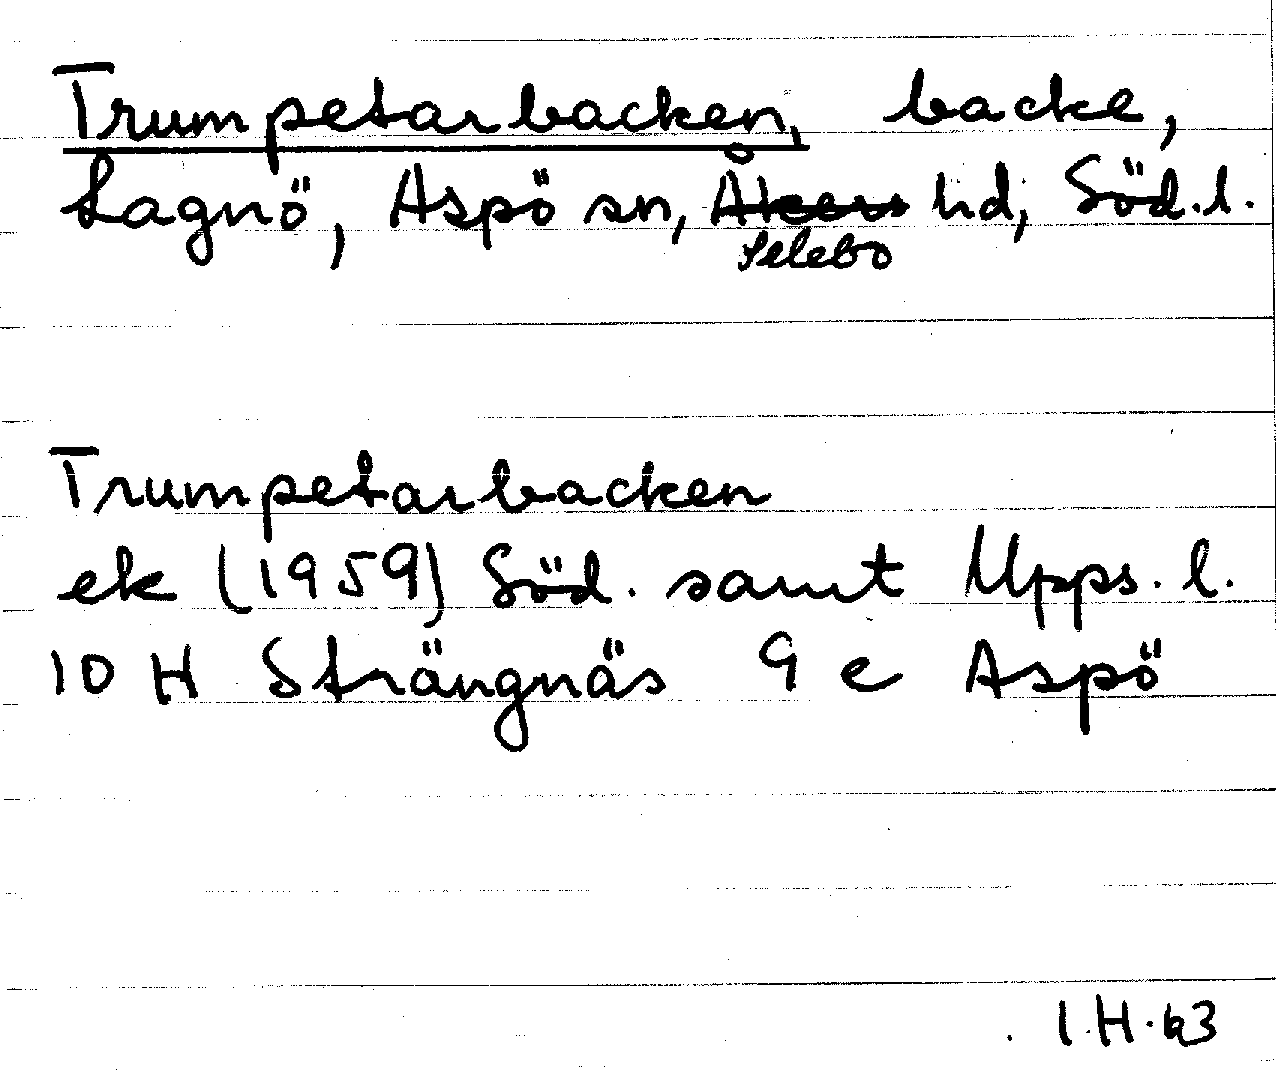 Trumpetarbacken, backe,
Lagnö, Aspö sn, Åkers hd, Söd. l.
Selebo
Trumpetarbacken
ek (1959) Söd. samt Upps. l.
10 H Strängnäs 9 e Aspö
I.H.63